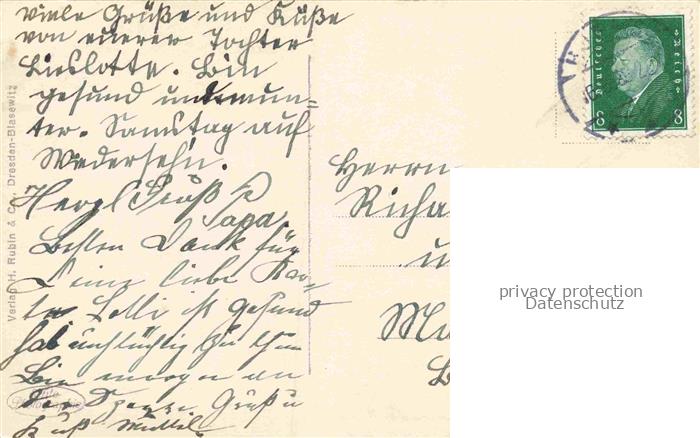 viele Grüße und Küße
von eurer Tochter
Lieslotte. Bin
gesund und mun-
ter. Samstag auf
Wiedersehn.
Herzl Gruß
Papa
Besten Dank für
Deine liebe Kar-
te Lolli ist gesund
hat tüchtig zu thun
Bin morgen an
Gruß u
Kuß Mutti
Verlag H. Rubin & Co., Dresden-Blasewitz
Photographie
Deutsches Reich
8 8
Herrn
Richa
u
Mü
B
privacy protection
Datenschutz